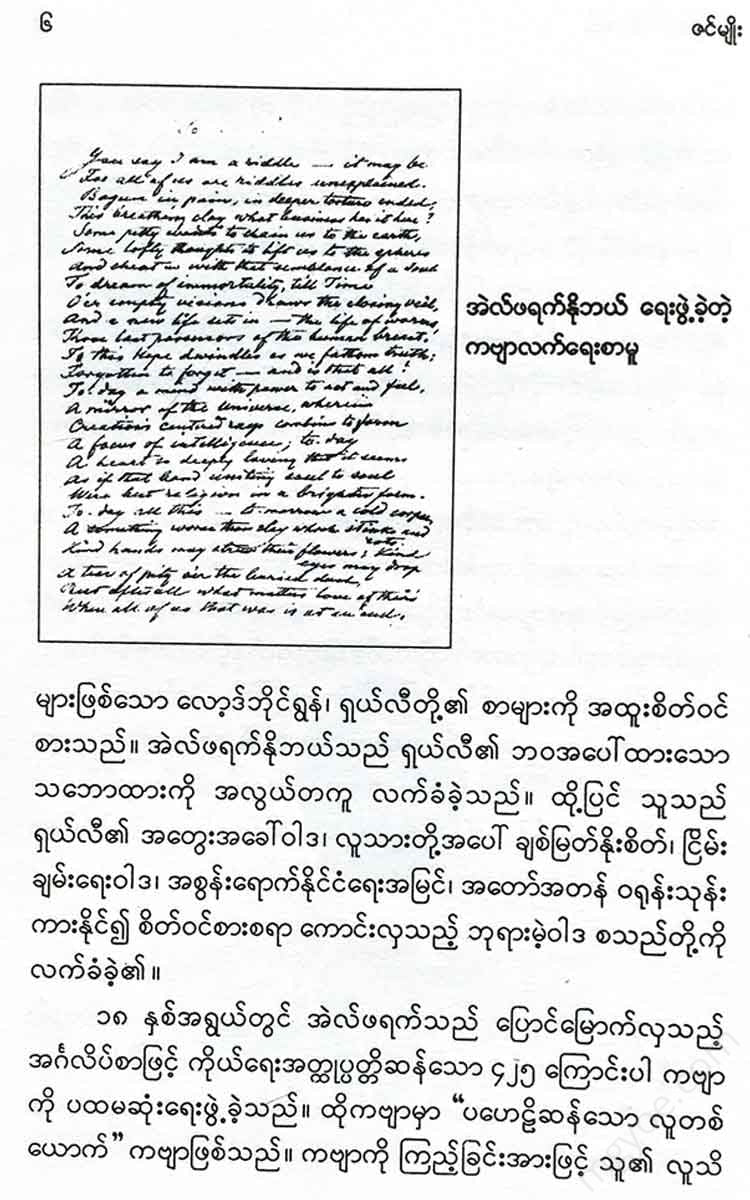 ၆
ဇင်မျိုး
To
You say I am a riddle — it may be
For all of us are riddles unexplained.
Begun in pain, in deeper torture ended,
This breathing clay what business has it here?
Some petty wants to chain us to the earth,
Some lofty thoughts to lift us to the spheres
And cheat us with that semblance of a soul
To dream of immortality, till Time
O'er empty visions draws the closing veil,
And a new life sets in — the life of worms,
Those last possessors of the human breast.
To this Hope dwindles as we fathom truth;
Forgotten to forget — and is that all?
To-day a mind with power to act and feel,
A mirror of the Universe, wherein
Creation's centred rays combine to form
A focus of intelligence; to-day
A heart so deeply loving that it seems
As if that band uniting soul to soul
Were but religion in a brighter form.
To-day all this — to-morrow a cold corpse
A something worse than clay which stinks and
rots.
Kind hands may strew their flowers, kind
eyes may drop
A tear of pity o'er the buried dead,
But after all what matters love of theirs
When all of us that was is at an end.
အဲလ်ဖရက်နိုဘယ် ရေးဖွဲ့ခဲ့တဲ့
ကဗျာလက်ရေးစာမူ
များဖြစ်သော လော့ဒ်ဘိုင်ရွန်၊ ရှယ်လီတို့၏ စာများကို အထူးစိတ်ဝင်
စားသည်။ အဲလ်ဖရက်နိုဘယ်သည် ရှယ်လီ၏ ဘဝအပေါ်ထားသော
သဘောထားကို အလွယ်တကူ လက်ခံခဲ့သည်။ ထို့ပြင် သူသည်
ရှယ်လီ၏ အတွေးအခေါ်ဝါဒ၊ လူသားတို့အပေါ် ချစ်မြတ်နိုးစိတ်၊ ငြိမ်း
ချမ်းရေးဝါဒ၊ အစွန်းရောက်နိုင်ငံရေးအမြင်၊ အတော်အတန် ဝရုန်းသုန်း
ကားနိုင်၍ စိတ်ဝင်စားစရာ ကောင်းလှသည့် ဘုရားမဲ့ဝါဒ စသည်တို့ကို
လက်ခံခဲ့၏။
၁၈ နှစ်အရွယ်တွင် အဲလ်ဖရက်သည် ပြောင်မြောက်လှသည့်
အင်္ဂလိပ်စာဖြင့် ကိုယ်ရေးအတ္ထုပ္ပတ္တိဆန်သော ၄၂၅ ကြောင်းပါ ကဗျာ
ကို ပထမဆုံးရေးဖွဲ့ခဲ့သည်။ ထိုကဗျာမှာ “ပဟေဠိဆန်သော လူတစ်
ယောက်” ကဗျာဖြစ်သည်။ ကဗျာကို ကြည့်ခြင်းအားဖြင့် သူ၏ လူသိ
mgyoe.com